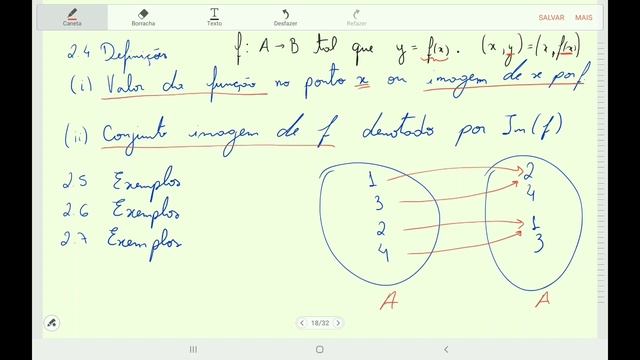 Caneta Borracha Texto Desfazer Refazer SALVAR MAIS
2.4 Definições f: A → B tal que y = f(x). (x, y) = (x, f(x))
(i) Valor da função no ponto x ou imagem de x por f
(ii) Conjunto imagem de f denotado por Im(f)
2.5 Exemplos
2.6 Exemplos
2.7 Exemplos
1 2
3 4
2 1
4 3
A A
18/32